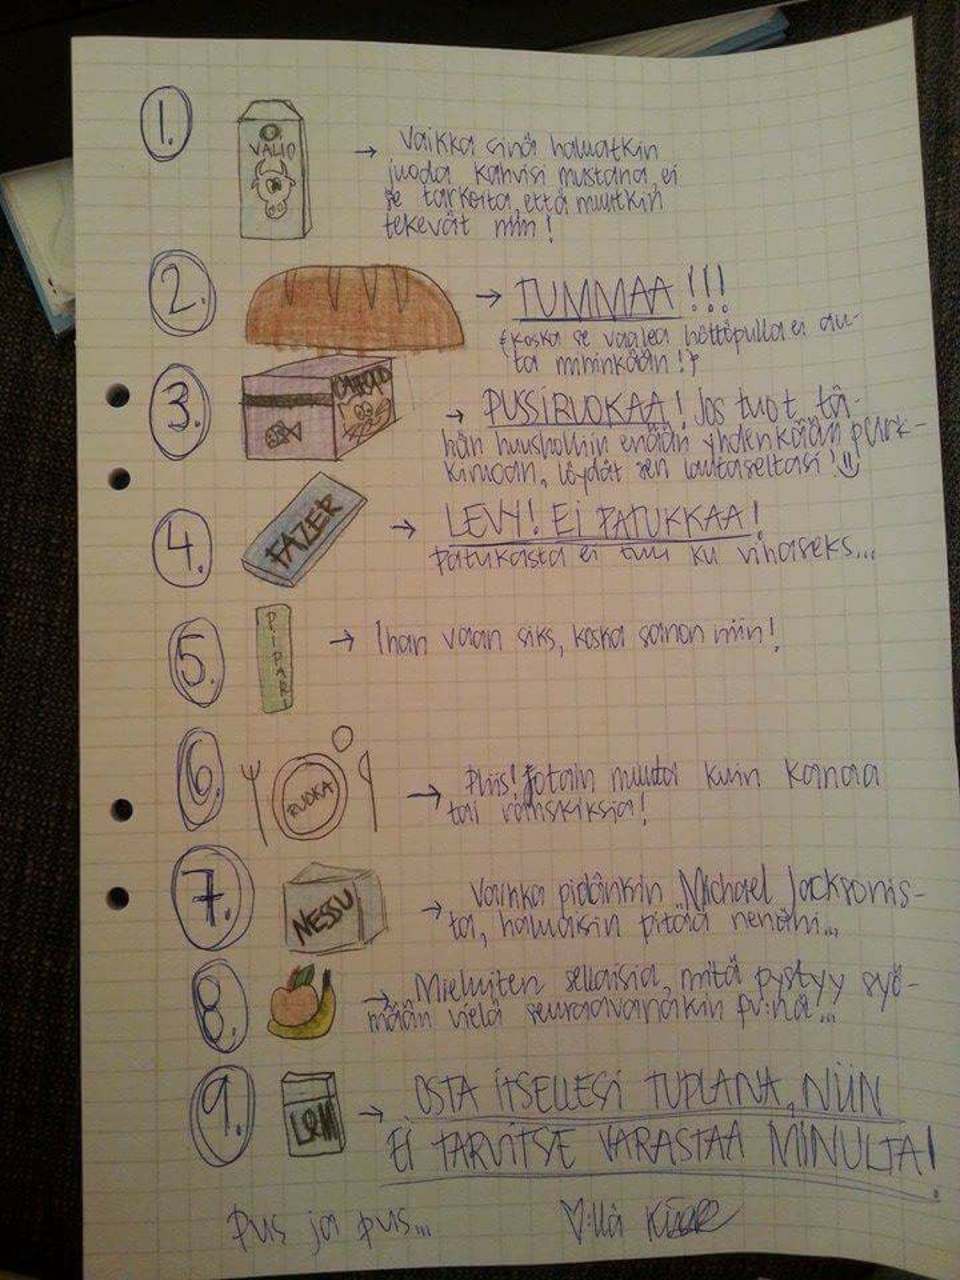 1.
VALIO
→ Vaikka sinä haluatkin
juoda kahvisi mustana, ei
se tarkoita, että muutkin
tekevät niin!
2.
→ TUMMAA!!!
(koska se vaalea höttöpulla ei au-
ta mihinkään!)
3.
CATFOOD
→ PUSSIRUOKAA! Jos tuot tä-
hän huusholliin enään yhdenkään purk-
kimoan, löydät sen lautaseltasi!
4.
FAZER
→ LEVY! EI PATUKKAA!
Patukasta ei tuu ku vihaseks...
5.
PIPAR
→ Ihan vaan siks, koska sanon niin!
6.
RUOKA
→ Pliis! Jotain muuta kuin kanaa
tai ranskiksia!
7.
NESSU
→ Vaikka pidänkin Michael Jacksonis-
ta, haluaisin pitää nenäni...
8.
→ Mieluiten sellaisia, mitä pystyy syö-
mään vielä seuraavanakin pv:nä...
9.
L&M
→ OSTA ITSELLESI TUPLANA, NIIN
EI TARVITSE VARASTAA MINULTA!
Pus ja pus...